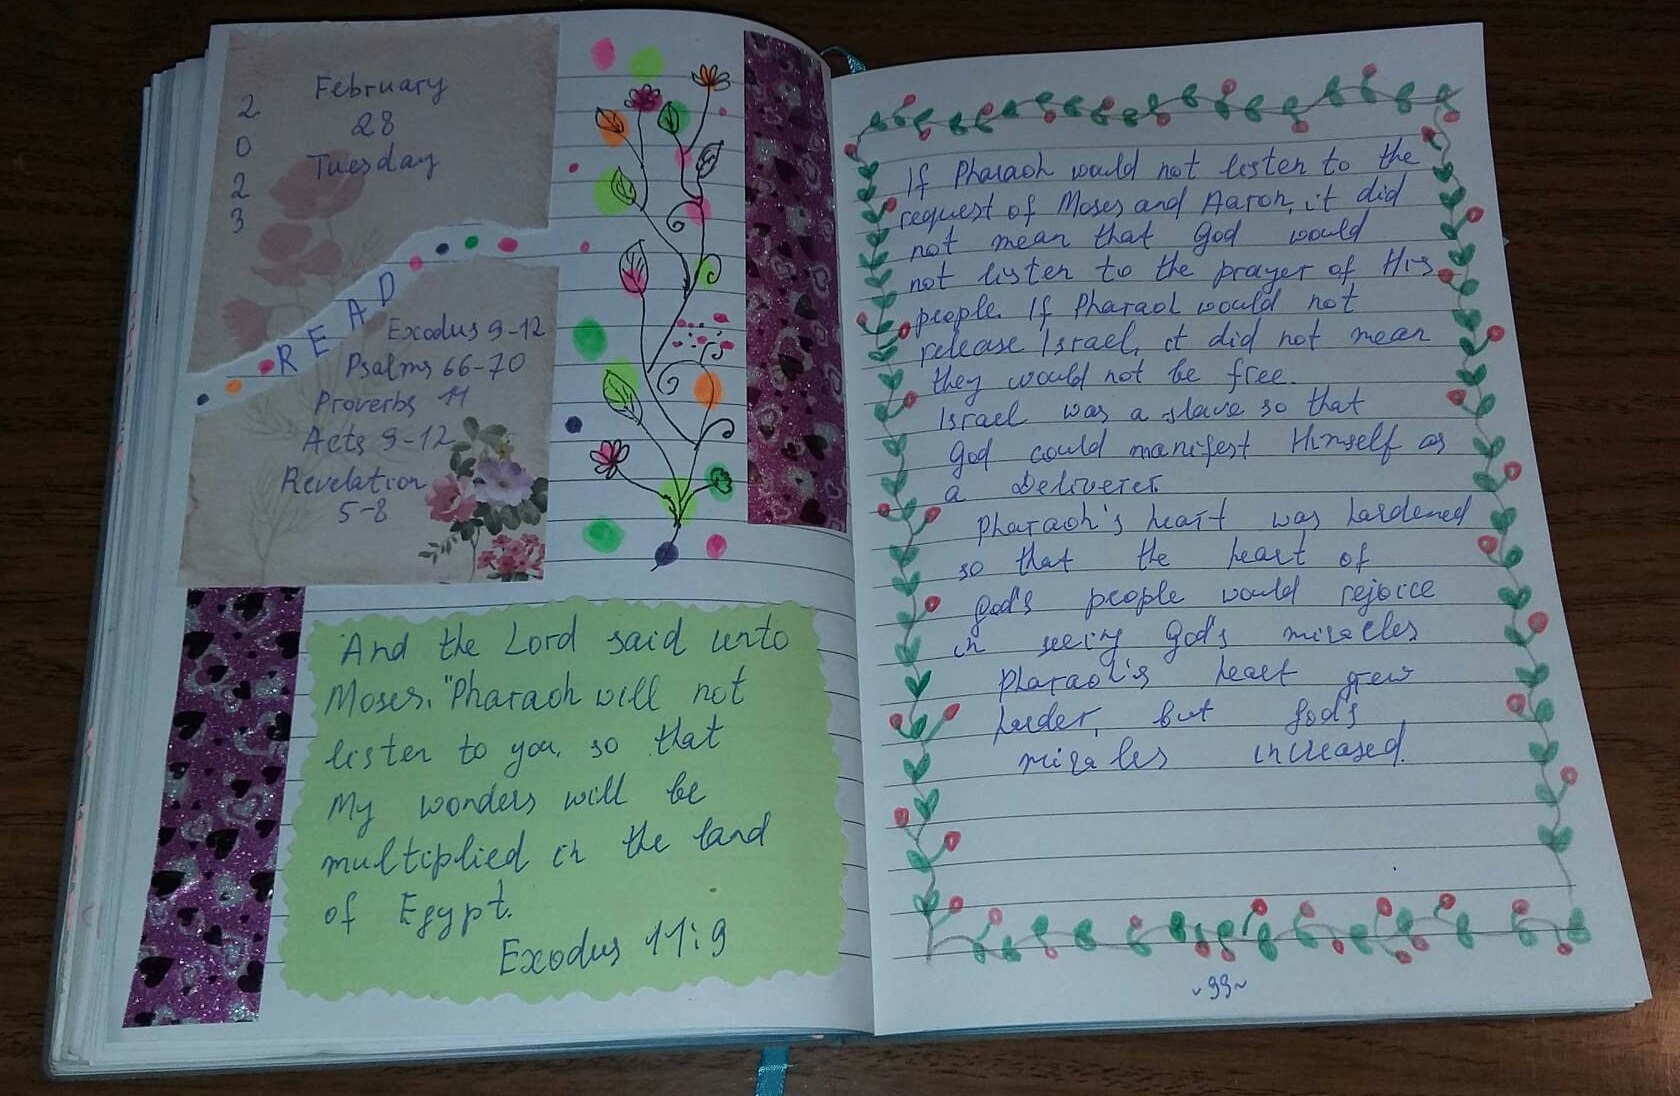 2023
February
28
Tuesday
READ
Exodus 9-12
Psalms 66-70
Proverbs 11
Acts 9-12
Revelation
5-8
And the Lord said unto
Moses. "Pharaoh will not
listen to you, so that
My wonders will be
multiplied in the land
of Egypt.
Exodus 11:9
If Pharaoh would not listen to the
request of Moses and Aaron, it did
not mean that God would
not listen to the prayer of His
people. If Pharaoh would not
release Israel, it did not mean
they would not be free.
Israel was a slave so that
God could manifest Himself as
a Deliverer.
Pharaoh's heart was hardened
so that the heart of
God's people would rejoice
in seeing God's miracles
Pharaoh's heart grew
harder, but God's
miracles increased.
~99~